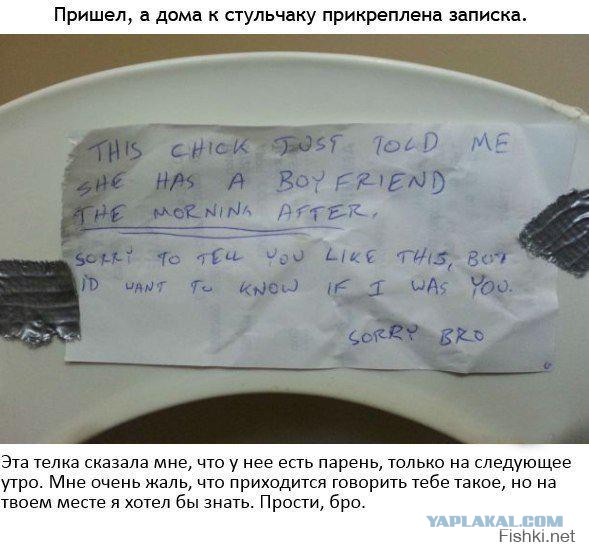 Пришел, а дома к стульчаку прикреплена записка.
THIS CHICK JUST TOLD ME
SHE HAS A BOYFRIEND
THE MORNING AFTER.
SORRY TO TELL YOU LIKE THIS, BUT
I'D WANT TO KNOW IF I WAS YOU.
SORRY BRO
Эта телка сказала мне, что у нее есть парень, только на следующее
утро. Мне очень жаль, что приходится говорить тебе такое, но на
твоем месте я хотел бы знать. Прости, бро.
YAPLAKAL.COM
Fishki.net